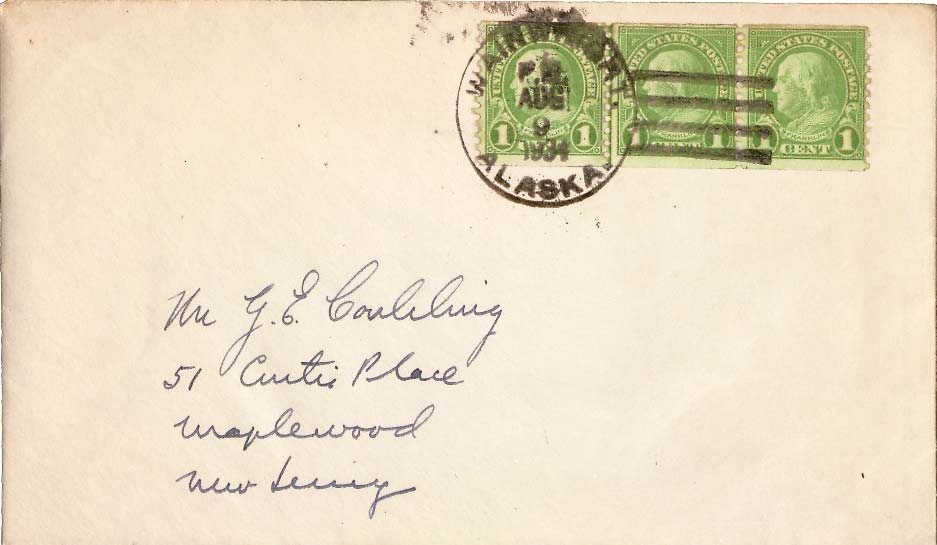 UNITED STATES POSTAGE
UNITED STATES POSTAGE
UNITED STATES POSTAGE
P.M.
AUG
9
1934
ALASKA.
1 FRANKLIN 1
1 FRANKLIN 1
CENT
1 FRANKLIN 1
CENT
Mr G. E.
51 Curtis Place
Maplewood
New Jersey